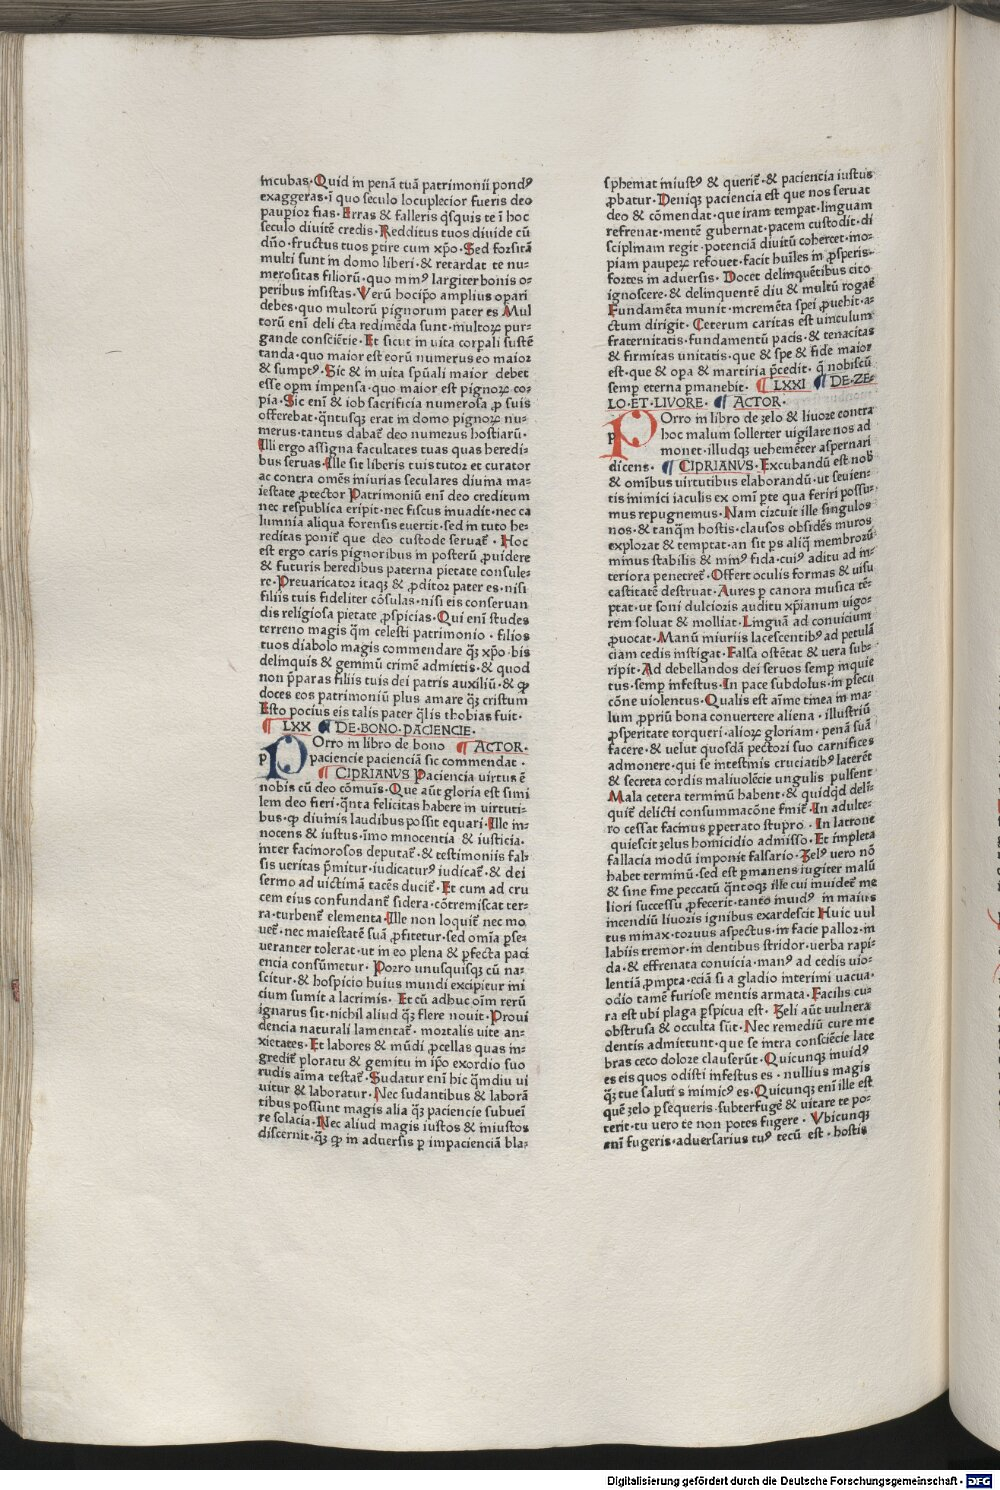 incubas·Quid in penā tuā patrimonii pondꝰ
exaggeras·ī quo seculo locuplecior fueris deo
paupior fias·Erras & falleris q̄squis te ī hoc
seculo diuitē credis·Redditus tuos diuide cū
dn̄o·fructus tuos ꝑtire cum xp̄o·Sed forsitā
multi sunt in domo liberi·& retardat te nu⸗
merositas filiorū·quo minꝰ largiter bonis o⸗
peribus insistas·Verū hocip̄o amplius opari
debes·quo multorū pignorum pater es Mul
torū enī deli cta redimēda sunt·multoꝝ pur⸗
gande consciētie·Et sicut in uita corpali sustē
tanda·quo maior est eorū numerus eo maior
& sumptꝰ·Sic & in uita sp̄uali maior debet
esse opm impensa·quo maior est pignoꝝ co⸗
pia·Sic enī & iob sacrificia numerosa ꝓ suis
offerebat·q̄ntusqꝫ erat in domo pignoꝝ nu⸗
merus·tantus dabat̄ deo numerus hostiarū·
Illi ergo assigna facultates tuas quas heredi⸗
bus seruas·Ille sit liberis tuis tutor et curator
ac contra omēs iniurias seculares diuina ma⸗
iestate ꝓtector Patrimoniū enī deo creditum
nec respublica eripit·nec fiscus inuadit·nec ca
lumnia aliqua forensis euertit·sed in tuto he⸗
reditas ponit̄ que deo custode seruat̄·Hoc
est ergo caris pignoribus in posterū ꝓuidere
& futuris heredibus paterna pietate consule⸗
re·Preuaricator itaqꝫ & ꝓditor pater es·nisi
filiis tuis fideliter cōsulas·nisi eis conseruan
dis religiosa pietate ꝓspicias·Qui enī studes
terreno magis q̄m celesti patrimonio·filios
tuos diabolo magis commendare q̄ꝫ xp̄o·bis
delinquis & geminū crimē admittis·& quod
non p̄paras filiis tuis dei patris auxiliū·& ꝙ
doces eos patrimoniū plus amare q̄ꝫ cristum
Esto pocius eis talis pater q̄lis thobias fuit·
¶ LXX ¶ DE·BONO·PACIENCIE·
POrro in libro de bono ¶ ACTOR·
paciencie pacienciā sic commendat·
¶ CIPRIANVS Paciencia uirtus ē
nobis cū deo cōmuis·Que aūt gloria est simi
lem deo fieri·q̄nta felicitas habere in uirtuti⸗
bus·ꝙ diuinis laudibus possit equari·Ille in⸗
nocens & iustus·imo innocentia & iusticia·
inter facinorosos deputat̄·& testimoniis fal⸗
sis ueritas p̄mitur·iudicaturꝰ iudicat̄·& dei
sermo ad uictimā tacēs ducit̄·Et cum ad cru
cem eius confundant̄ sidera·cōtremiscat ter⸗
ra·turbent̄ elementa·Ille non loquit̄ nec mo
uet̄·nec maiestatē suā ꝓfitetur·sed om̄ia ꝑse⸗
ueranter tolerat·ut in eo plena & ꝑfecta paci
encia consūmetur·Porro unusquisqꝫ cū na⸗
scitur·& hospicio huius mundi excipitur ini
cium sumit a lacrimis·Et cū adhuc oīm rerū
ignarus sit·nichil aliud q̄ꝫ flere nouit·Proui
dencia naturali lamentat̄·mortalis uite an⸗
xietates·Et labores & mūdi ꝓcellas quas in⸗
gredit̄ ploratu & gemitu in ip̄o exordio suo
rudis aīma testat̄·Sudatur enī hic q̄mdiu ui
uitur & laboratur·Nec sudantibus & laborā
tibus possunt magis alia q̄ꝫ paciencie subueī
re solacia·Nec aliud magis iustos & iniustos
discernit·q̄ꝫ ꝙ in aduersis ꝑ impacienciā bla⸗
sphemat iniustꝰ & querit̄·& paciencia iustus
ꝓbatur·Deniqꝫ paciencia est que nos seruat
deo & cōmendat·que iram temꝑat·linguam
refrenat·mentē gubernat·pacem custodit·di
sciplinam regit·potenciā diuitū cohercet·ino⸗
piam pauꝑeꝝ refouet·facit huīles in ꝓsperis⸗
fortes in aduersis·Docet delinquētibus cito
ignoscere·& delinquentē diu & multū rogar̄
Fundamēta munit·incremēta spei ꝓuehit·a⸗
ctum dirigit·Ceterum caritas est uinculum
fraternitatis·fundamentū pacis·& tenacitas
& firmitas unitatis·que & spe & fide maior
est·que & opa & martiria p̄cedit·q̄ nobiscū
semꝑ eterna ꝑmanebit·¶ LXXI ¶ DE·ZE⸗
LO·ET·LIVORE·¶ ACTOR·
POrro in libro de zelo & liuore contra
hoc malum sollerter uigilare nos ad
monet·illudqꝫ uehemēter aspernari
dicens·¶ CIPRIANVS·Excubandū est nob̄
& omībus uirtutibus elaborandū·ut seuien⸗
tis inimici iaculis ex omī ꝑte qua feriri possu⸗
mus repugnemus·Nam circuit ille singulos
nos·& tanq̄m hostis·clausos obsidēs muros
explorat & temptat·an sit ꝑs aliq̄ membrorū
minus stabilis & minꝰ fida·cuiꝰ aditu ad in⸗
teriora penetret̄·Offert oculis formas & uisu
castitatē destruat·Aures ꝑ canora musica tē⸗
ptat·ut soni dulcioris auditu xp̄ianum uigo⸗
rem soluat & molliat·Linguā ad conuicium
ꝓuocat·Manū iniuriis lacescentibꝰ ad petulā
ciam cedis instigat·Falsa ostētat & uera sub⸗
ripit·Ad debellandos dei seruos semꝑ inquie
tus·semꝑ infestus·In pace subdolus·in ꝑsecu
cōne uiolentus·Qualis est aīme tinea in ma⸗
lum ꝓpriū bona conuertere aliena·illustriū
ꝓsperitate torqueri·alioꝝ gloriam·penā suā
facere·& uelut quosdā pectori suo carnifices
admonere·qui se intestinis cruciatibꝰ laterēt
& secreta cordis maliuolēcie ungulis pulsent
Mala cetera terminū habent·& quidq̄d deli⸗
quit̄ delicti consummacōne fīnit̄·In adulte⸗
ro cessat facinus ꝑpetrato stupro·In latrone
quiescit zelus homicidio admisso·Et impleta
fallacia modū imponit falsario·Zelꝰ uero nō
habet terminū·sed est ꝑmanens iugiter malū
& sine fine peccatū q̄ntoqꝫ ille cui inuidet̄ me
liori successu ꝓfecerit·tanto inuidꝰ in maius
incendiū liuoris ignibus exardescit Huic uul
tus minax·toruus aspectus·in facie pallor·in
labiis tremor·in dentibus stridor·uerba rapi⸗
da·& effrenata conuicia·manꝰ ad cedis uio⸗
lentiā ꝓmpta·eciā si a gladio interimi uacua·
odio tamē furiose mentis armata·Facilis cu⸗
ra est ubi plaga ꝑspicua est·Zeli aūt uulnera
obstrusa & occulta sūt·Nec remediū cure me
dentis admittunt·que se intra consciēcie late
bras ceco dolore clauserūt·Quicunqꝫ inuidꝰ
es eis quos odisti infestus es·nullius magis
q̄ꝫ tue saluti s inimicꝰ es·Quicunqꝫ enī ille est
quē zelo ꝑsequeris·subterfugē & uitare te po⸗
terit·tu uero te non potes fugere·Vbicunqꝫ
enī fugeris·aduersarius tuꝰ tecū est·hostis
Digitalisierung gefördert durch die Deutsche Forschungsgemeinschaft - DFG